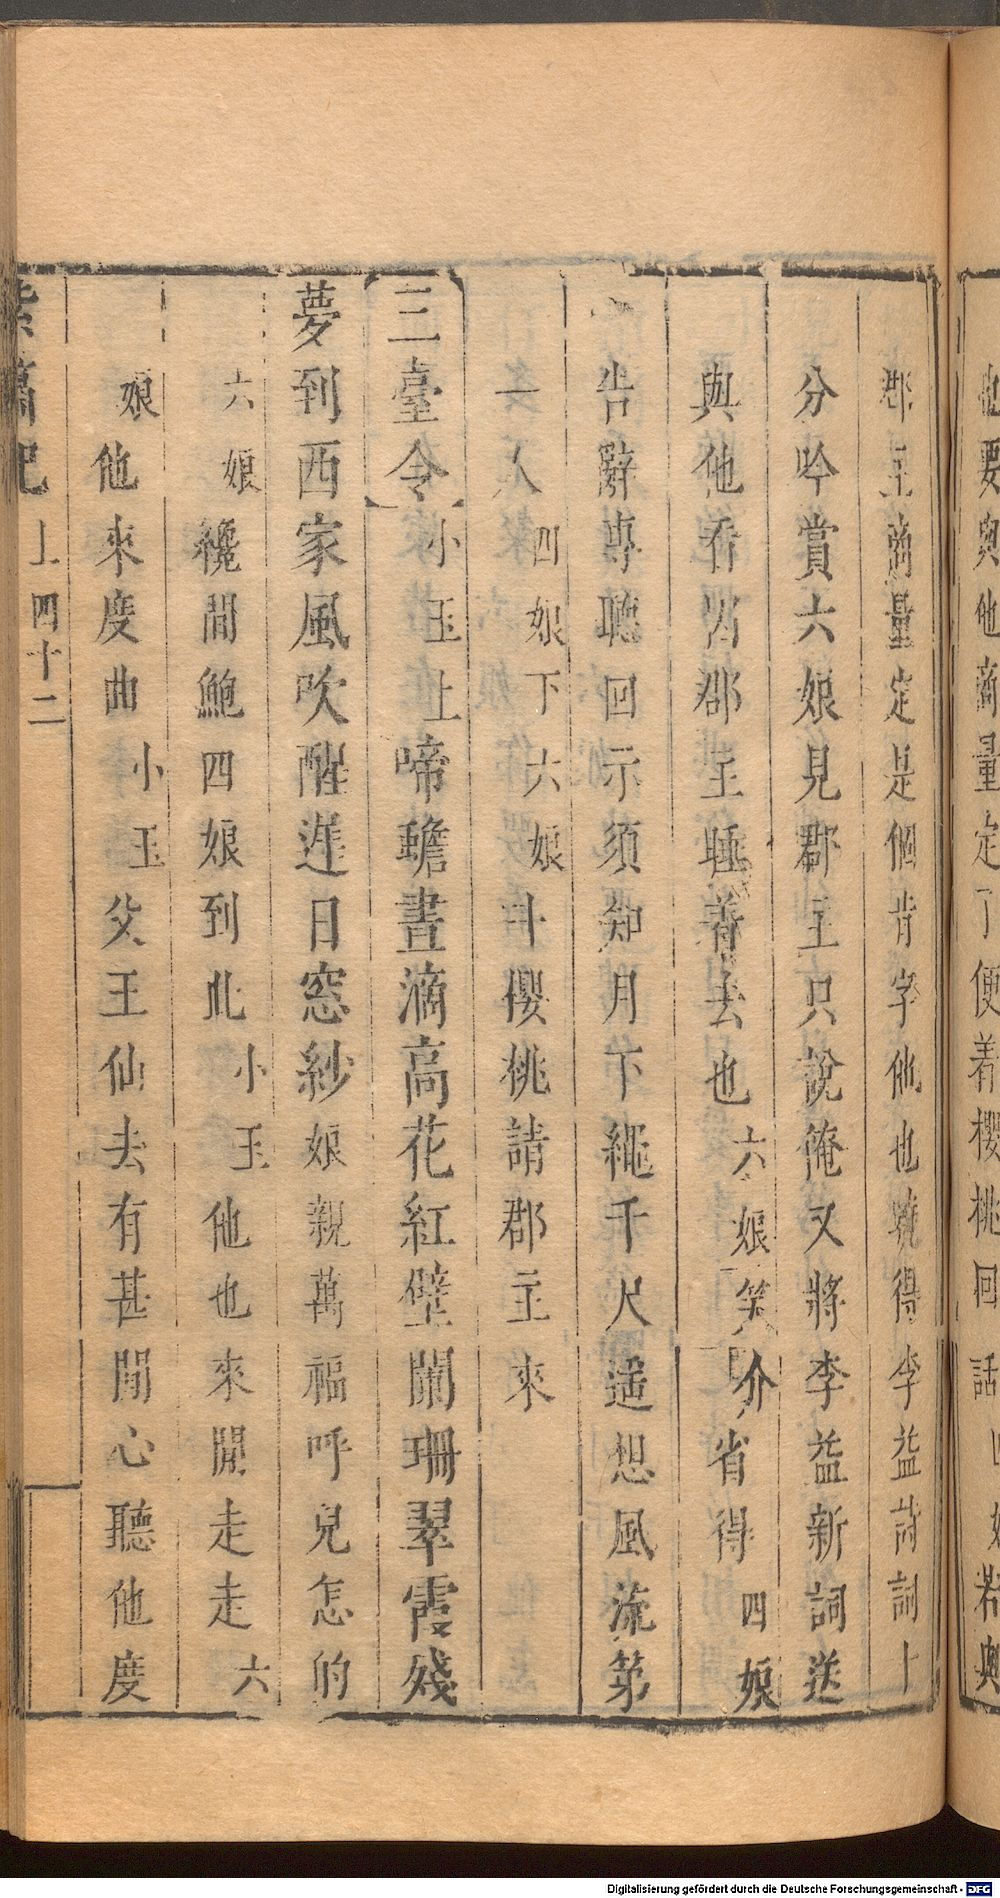 他要與他商量定了便着櫻桃回話四娘若與
郡主商量定是個肯字他也曉得李益詩詞十
分吟賞六娘見郡主只說俺又將李益新詞送
與他看官郡主睡着去也六娘笑介省得四娘
告辭專聽回示須知月下繩千尺遥想風流第
一人四娘下六娘斗櫻桃請郡主來
三臺令小玉上啼蟾晝滴高花紅壁闌珊翠霞殘
夢到西家風吹醒遲日窓紗娘親萬福呼兒怎的
六娘纔間鮑四娘到此小玉他也來閒走走六
娘他來度曲小玉父王仙去有甚閒心聽他度
紫簫記 上 四十二
Digitalisierung gefördert durch die Deutsche Forschungsgemeinschaft - DFG